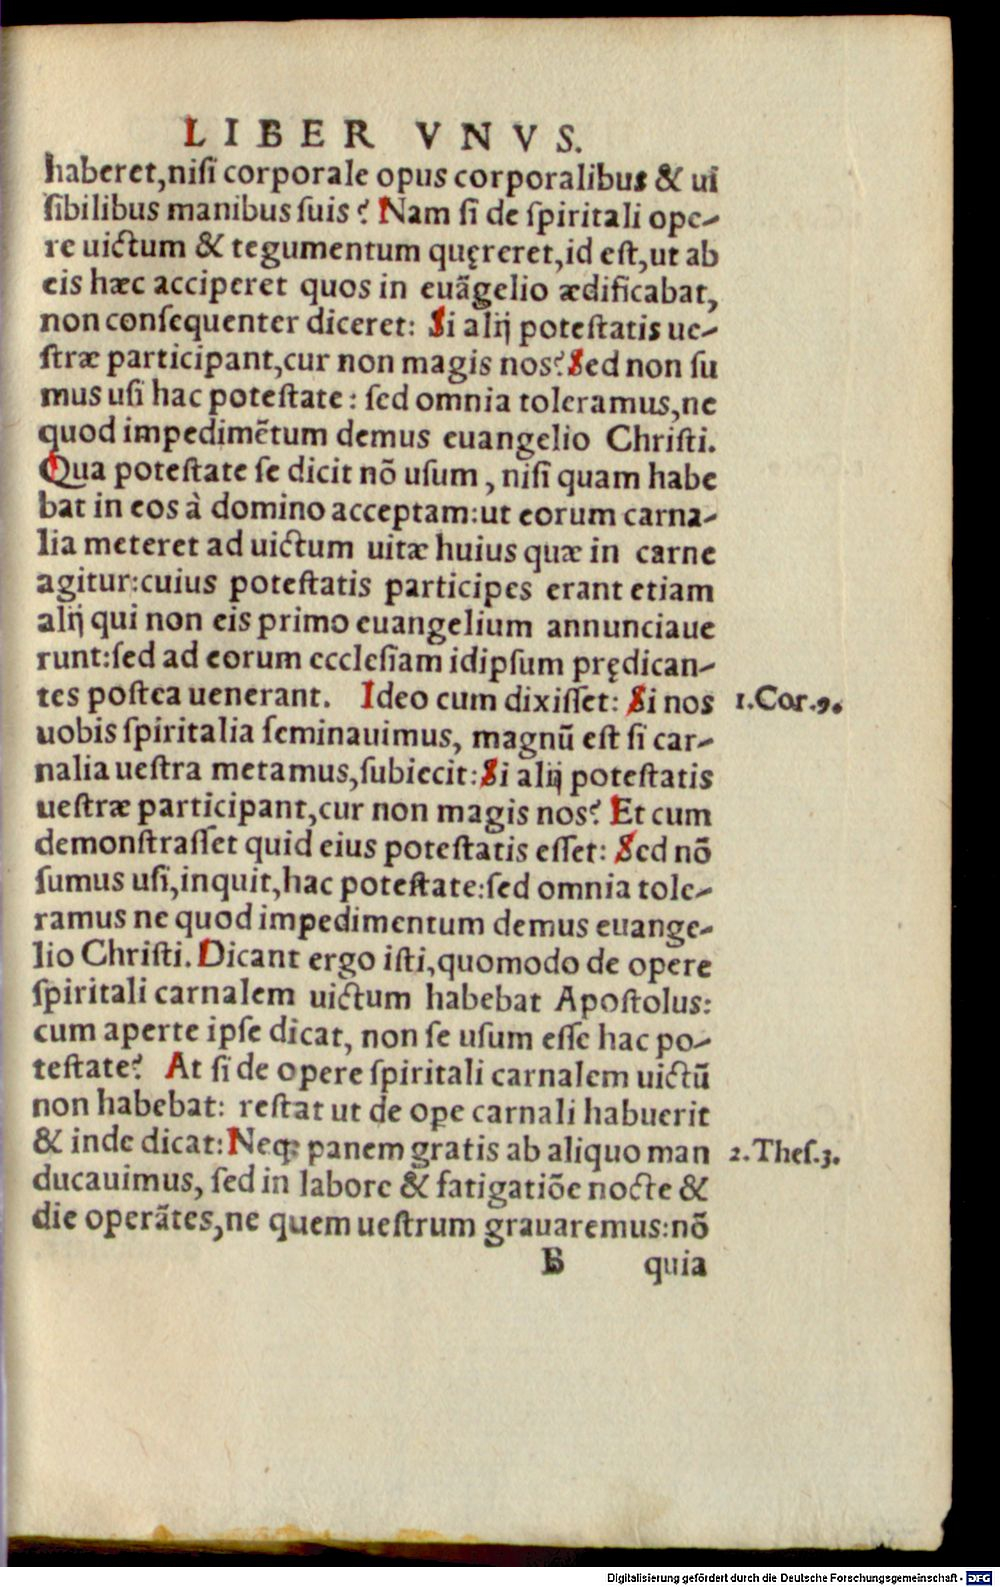 LIBER VNVS.
haberet,nisi corporale opus corporalibus & ui
sibilibus manibus suis? Nam si de spiritali ope-
re uictum & tegumentum quęreret,id est,ut ab
eis hæc acciperet quos in euãgelio ædificabat,
non consequenter diceret: Si alij potestatis ue-
stræ participant,cur non magis nos? Sed non su
mus usi hac potestate: sed omnia toleramus,ne
quod impedimẽtum demus euangelio Christi.
Qua potestate se dicit nõ usum, nisi quam habe
bat in eos à domino acceptam:ut eorum carna-
lia meteret ad uictum uitæ huius quæ in carne
agitur:cuius potestatis participes erant etiam
alij qui non eis primo euangelium annunciaue
runt:sed ad eorum ecclesiam idipsum prędican-
tes postea uenerant. Ideo cum dixisset: Si nos 1.Cor.9.
uobis spiritalia seminauimus, magnũ est si car-
nalia uestra metamus,subiecit:Si alij potestatis
uestræ participant,cur non magis nos? Et cum
demonstrasset quid eius potestatis esset: Sed nõ
sumus usi,inquit,hac potestate:sed omnia tole-
ramus ne quod impedimentum demus euange-
lio Christi. Dicant ergo isti,quomodo de opere
spiritali carnalem uictum habebat Apostolus:
cum aperte ipse dicat, non se usum esse hac po-
testate? At si de opere spiritali carnalem uictũ
non habebat: restat ut de ope carnali habuerit
& inde dicat:Neq; panem gratis ab aliquo man 2.Thes.3.
ducauimus, sed in labore & fatigatiõe nocte &
die operãtes,ne quem uestrum grauaremus:nõ
B quia
Digitalisierung gefördert durch die Deutsche Forschungsgemeinschaft - DFG